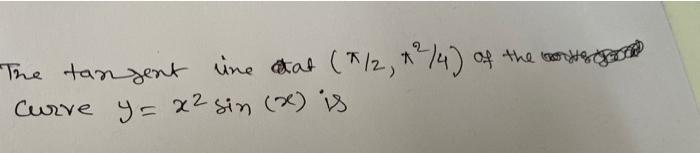 The tangent line at (π/2, π²/4) of the
Curve y = x² sin (x) is